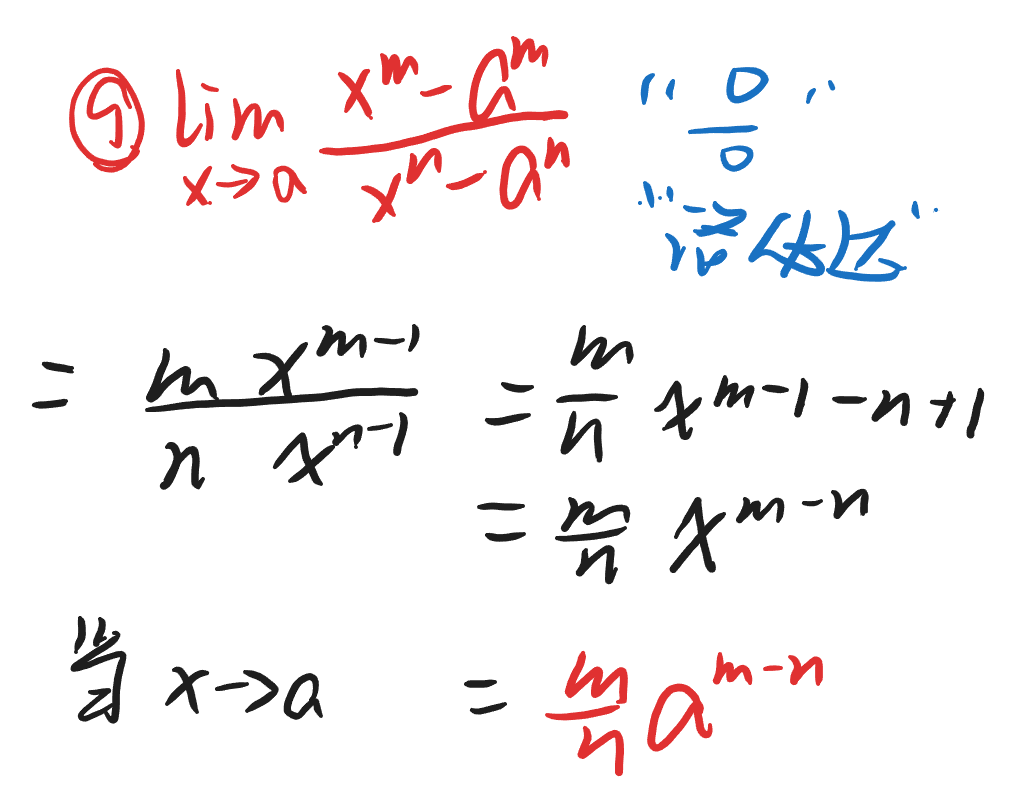 ⑨ lim x→a (x^m - a^m)/(x^n - a^n) "0/0"
"洛必达"
= (m x^(m-1))/(n x^(n-1)) = m/n x^(m-1-n+1)
= m/n x^(m-n)
当 x→a = m/n a^(m-n)